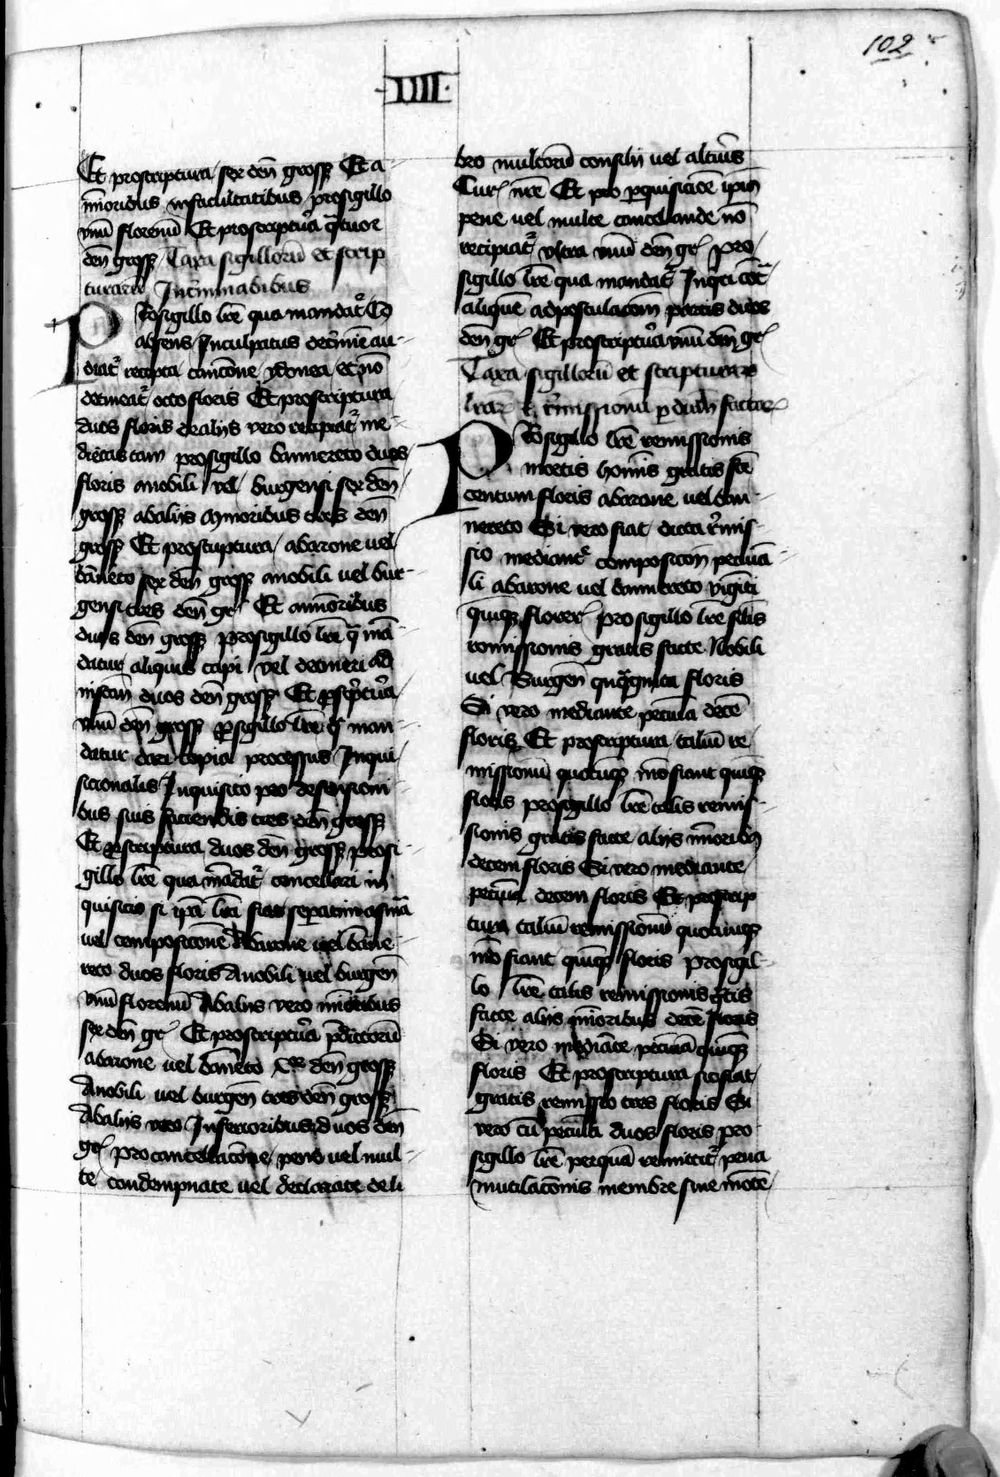 102
IIII
Et proscriptura sex den̄ gross̄ Et a
mīoribus īnfacultatibus prosigillo
vnū florenū Et proscriptur̄a q̄tuor
den̄ gross̄ Taxa sigillorū et scrip
turarū In c̄minalibus
Prosigillo lr̄e qua mandat᷑
absens Inculpatus de cr̄imīe au
diat᷑ recepta cauc̄one ydonea et nō
detineat᷑ octo floris Et proscriptura
duos floris de aliis vero recipiat᷑ me
dietas tam prosigillo bannereto duos
floris a nobili vel burgensi sex den̄
gross̄ ab aliis mīoribus tres den̄
gross̄ Et proscriptura a barone uel
bāneto sex den̄ gross̄ a nobili uel bur
gensi tres den̄ gr̄ Et a minoribus
duos den̄ gross̄ prosigillo lr̄e q̄ mā
datur aliquis capi vel detineri ad
instan̄ duos den̄ gross̄ Et p̄scptur̄a
vnū den̄ gross̄ prosigillo lr̄e q̄ man
datur dari copia processus Inqui
sicionalis Inquisito pro defensioni
bus suis faciendis tres den̄ gross̄
Et proscriptura duos den̄ gross̄ prosi
gillo lr̄e qua mādat᷑ cancellari in
quisicio si
uel composicōne Abarone uel bāne
reto duos floris A nobili uel burgen̄
vnū florenū Ab aliis vero mīoribus
sex den̄ gr̄ Et proscriptur̄a p̄dictorū
a barone uel bāneto den̄ gross̄
A nobili uel burgen̄ tres den̄ gross̄
Ab aliis vero Inferioribus duos den̄
gr̄ pro cancellacōne pene uel mul
te condempnate uel declarate de li
bro multorū consilii uel alterīs
Cur̄ nr̄e Et pro p̄quisicōe ip̄iꝰ
pene uel multe cancellande nō
recipiat᷑ vltra vnū den̄ gr̄ Pro
sigillo lr̄e qua mandat᷑ Inq̄ri
aliquē ad postulacōm partis duos
den̄ gr̄ Et proscriptur̄a vnū den̄ gr̄
Taxa sigillorū et scripturarū
lr̄ar̄ r̄missionū
Prosigillo lr̄e remissionis
mortis homīs gratis fc̄e
centum floris a barone uel ban
nereto Si vero fiat dicta r̄mis
sio mediant̄ composicōn pecuniā
li a barone uel bannereto viginti
quinq̄ floreni prosigillo lr̄e silīs
remissionis gratis facte Nobili
uel Burgen̄ q̄q̄ginta floris
Si vero mediante pecunia decē
floris Et proscriptura taliū re
missionū quotcūq̄ mō fiant quiq̄
floris prosigillo lr̄e talis remis
sionis gratis facte aliis mīoribꝰ
decem floris Si vero mediante
pecunia decem floris Et proscrip
tura taliū remissionū quotcūq̄
mō fiant quinq̄ floris Prosigil
lo lr̄e talis remissionis gr̄tis
facte aliis mīoribus decē floris
Si vero mediāte pecunia quinq̄
floris Et proscriptura si fiat
gratis remissio tres floris Si
vero cū pecunia duos floris pro
sigillo lr̄e per quā remittit᷑ pena
mutilacōnis membre siue mortē